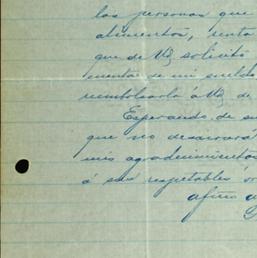 las personas que
alimentos, renta
que de Ud solicitó
mentar de mi sueldo
reembolsarla á Ud de
Esperando de su
que no desairará
mis agradecimientos
á sus respetables
afmo